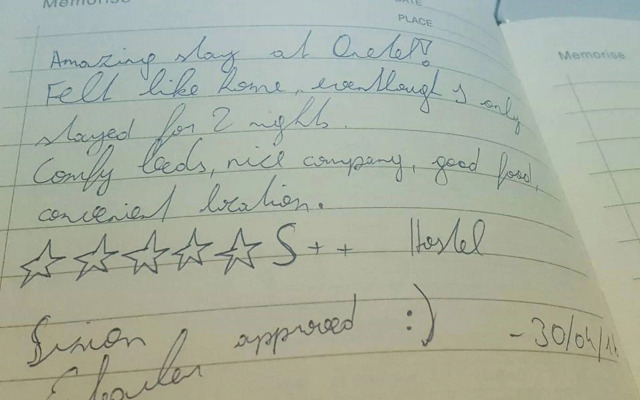 Memorise
DATE
PLACE
Memorise
Amazing stay at
Felt like home, eventhough I only
stayed for 2 nights.
Comfy beds, nice company, good food,
convenient location.
S++ Hostel
approved :) - 30/04/1